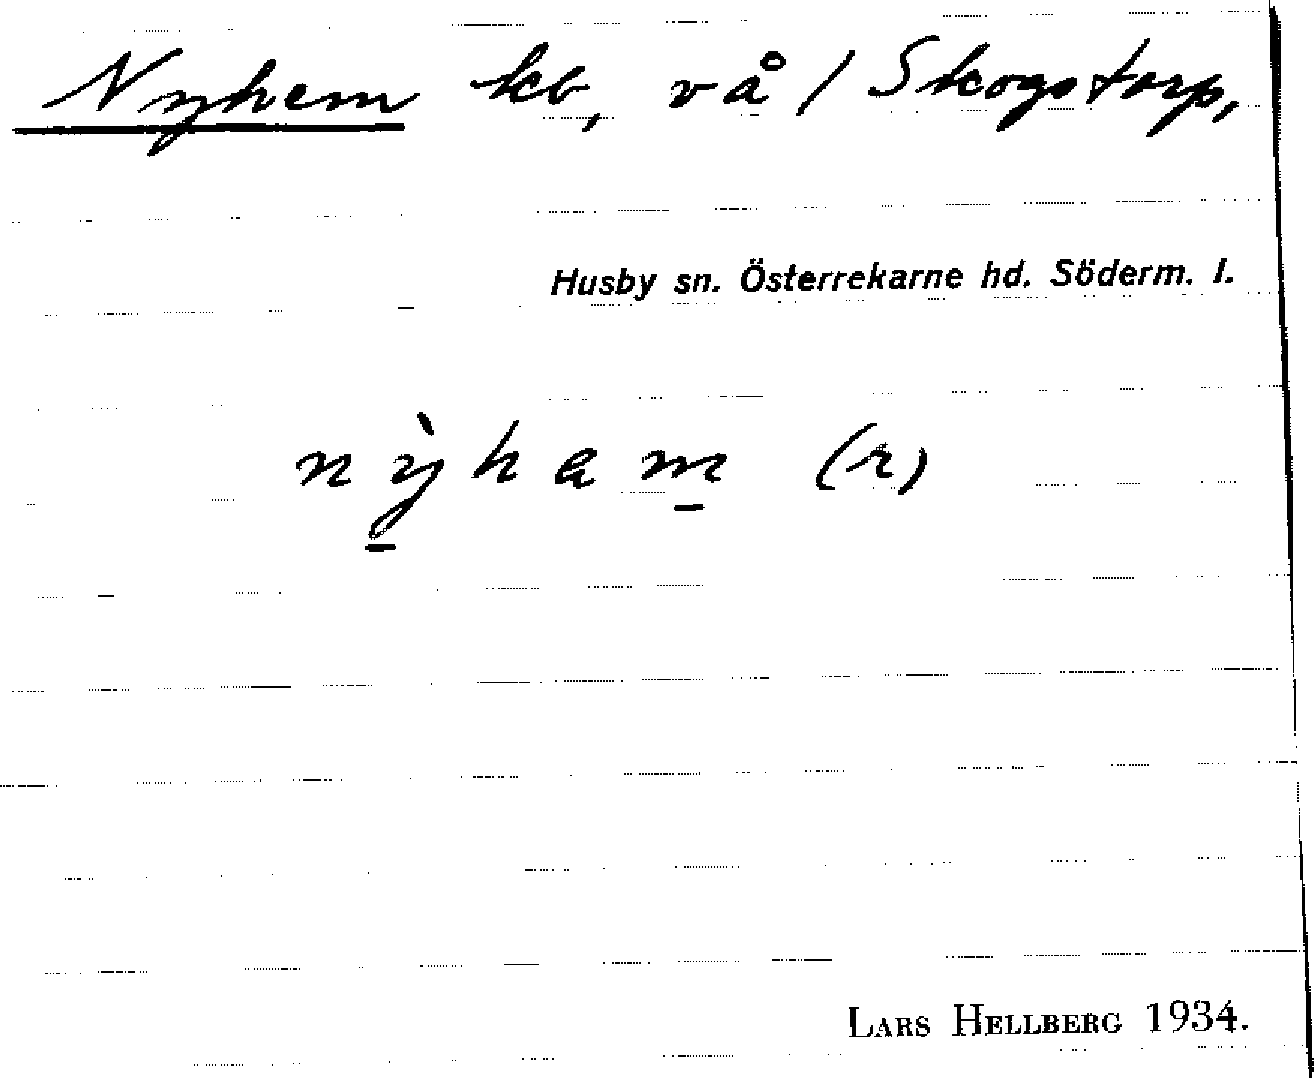 Nyhem kb, vå / Skogstorp,
Husby sn. Österrekarne hd. Söderm. l.
nỳham (r)
LARS HELLBERG 1934.